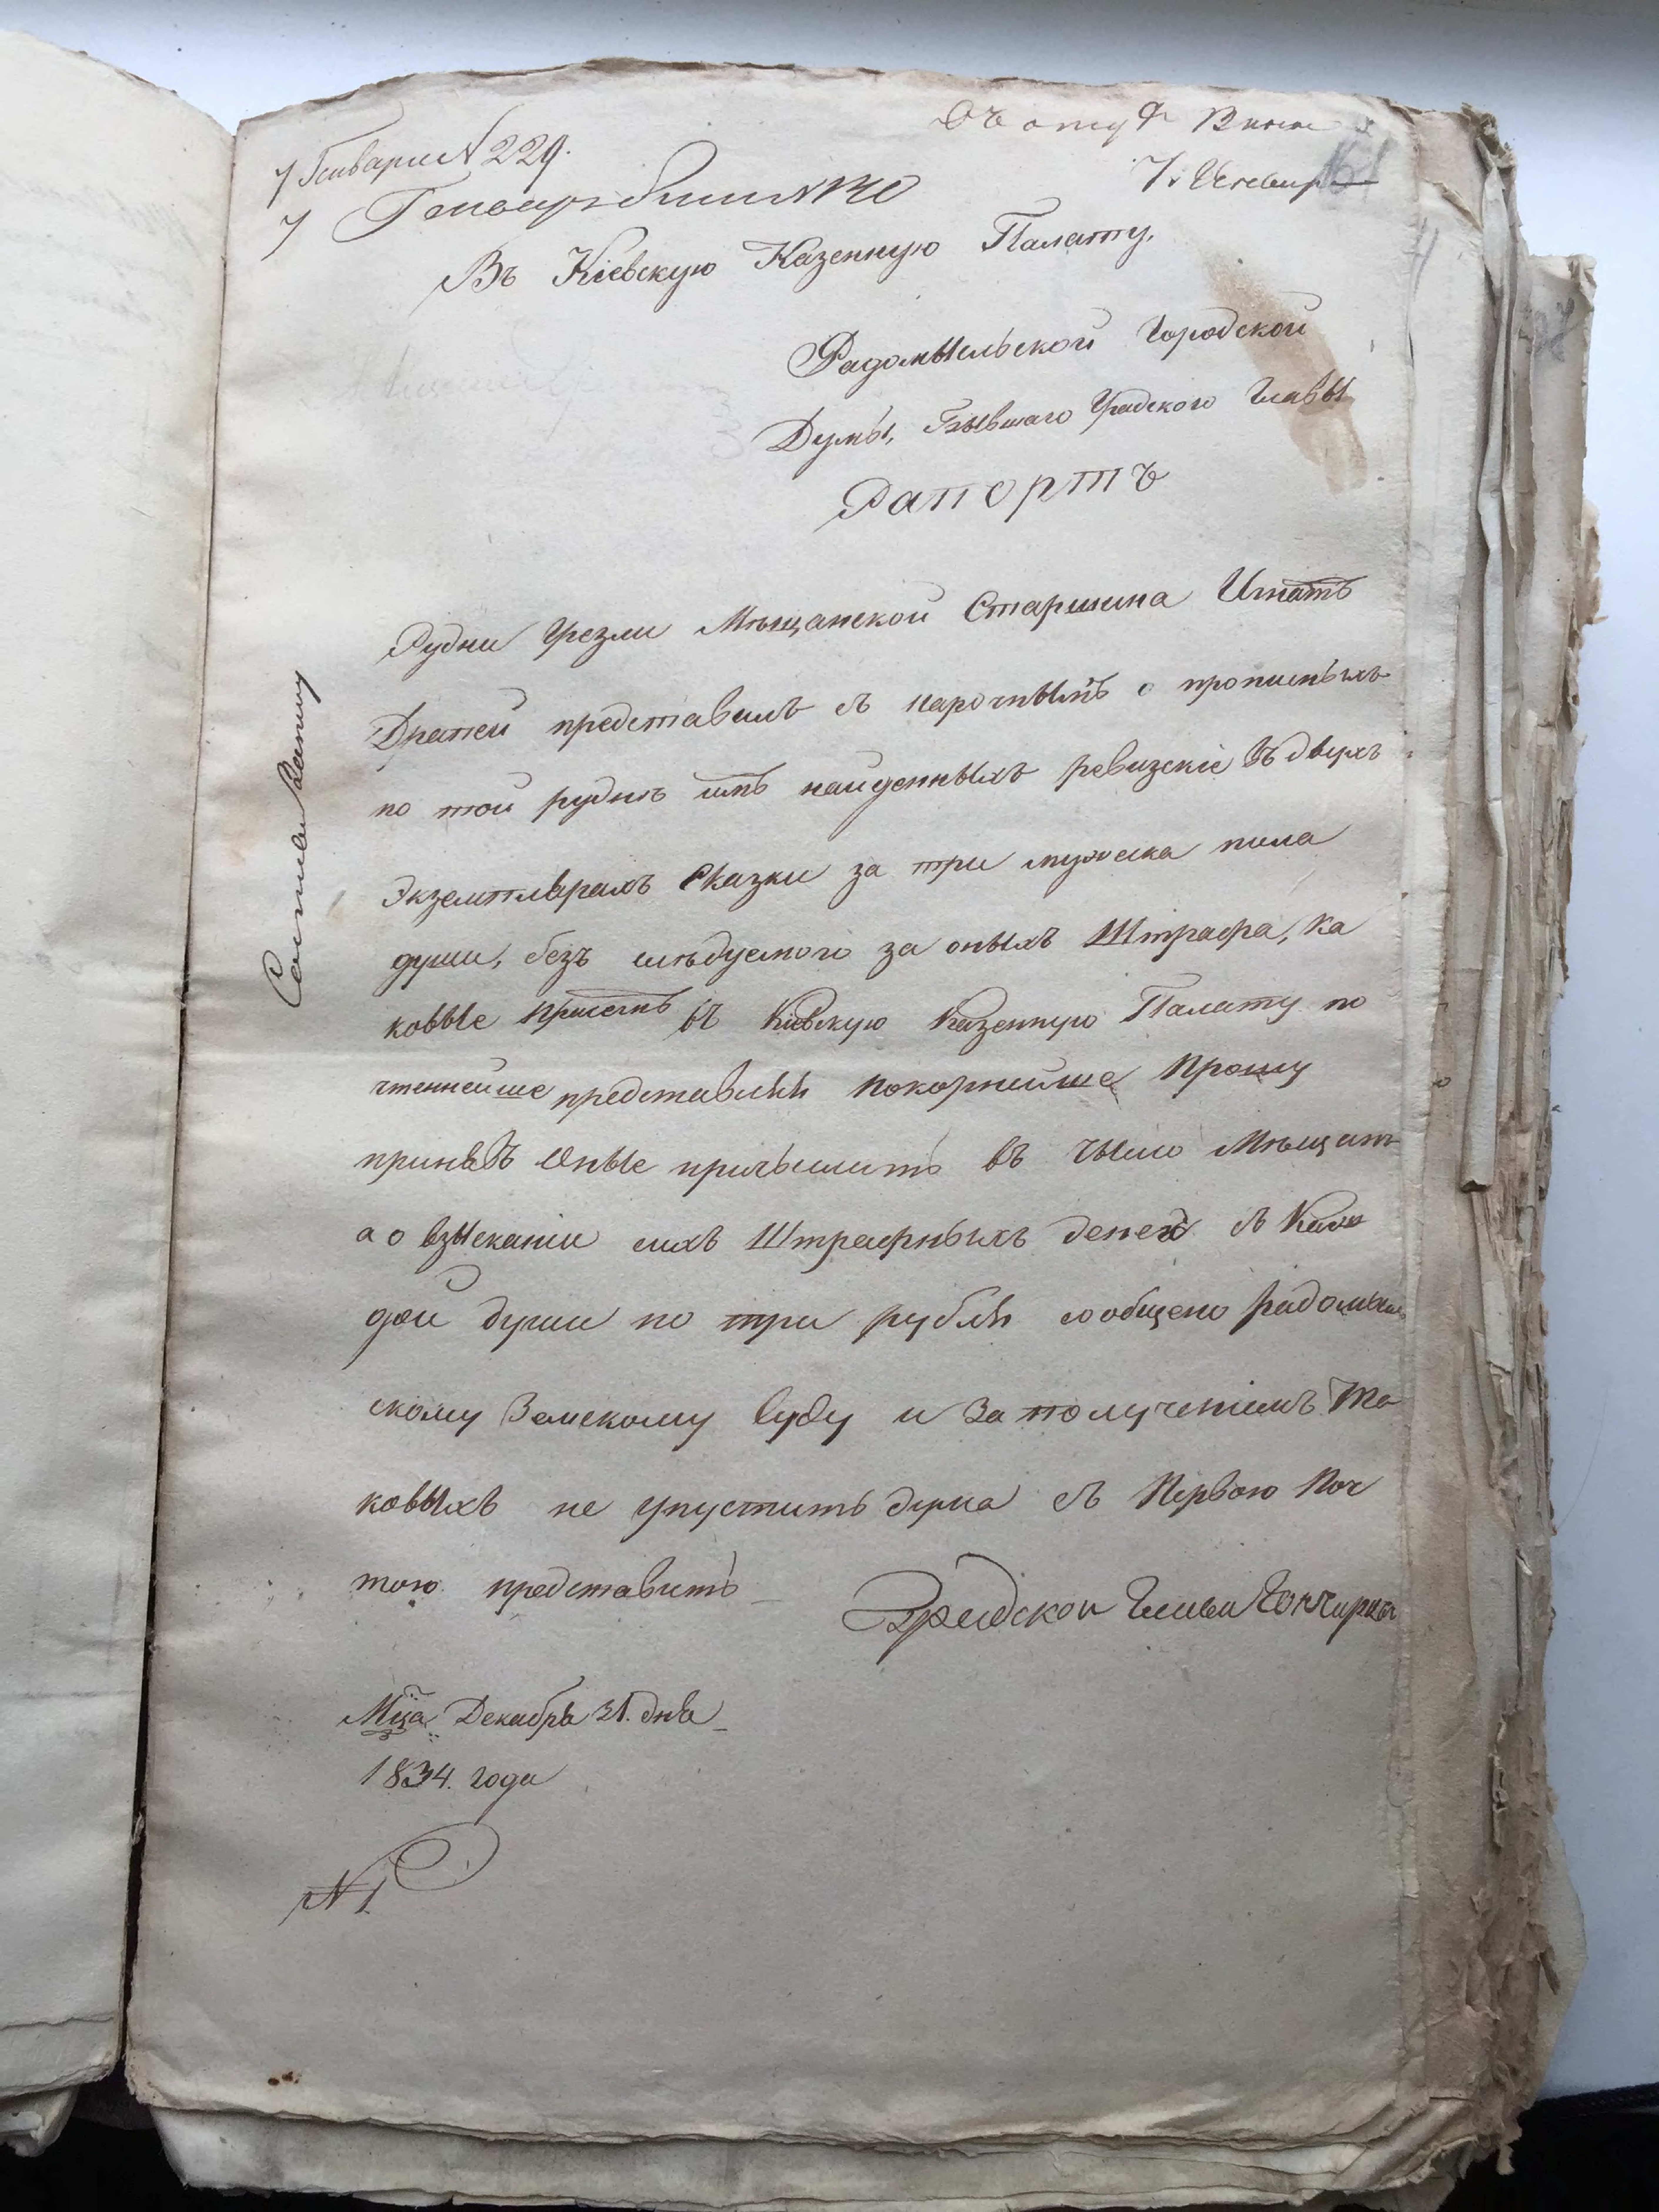 7 Генваря N 229.
7. Генвар
161
Въ Кіевскую Казенную Палату,
Радомысльской Городской
Думы, Бывшаго Градского Главы
Рапортъ
Рудни Грезли Мѣщанской Старшина Игнатъ
представилъ съ нарочнымъ о прописныхъ
по той руднѣ имъ найденныхъ ревизскіе въ двухъ
Экземплярахъ Сказки за три мужеска пола
души, безъ слѣдуемого за оныхъ Штрафа, ка
ковые присемъ въ Кіевскую Казенную Палату по
чтеннейше представляя покорнейше Прошу
принявъ Оные причислить въ число Мѣщанъ
а о взысканіи сихъ Штрафныхъ денег съ Каж
дой души по три рубля сообщено Радомысль
скому Земскому Суду и За получениемъ Та
ковыхъ не упуститъ дума съ Первою Поч
тою представить
Градской Глава Гончаръ
Мца Декабря 31. дня
1834. года
N 1.